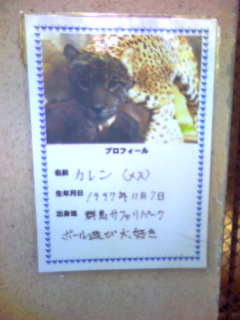 プロフィール
名前 カレン (メス)
生年月日 1997年11月7日
出身地 群馬サファリパーク
ボール遊び大好き